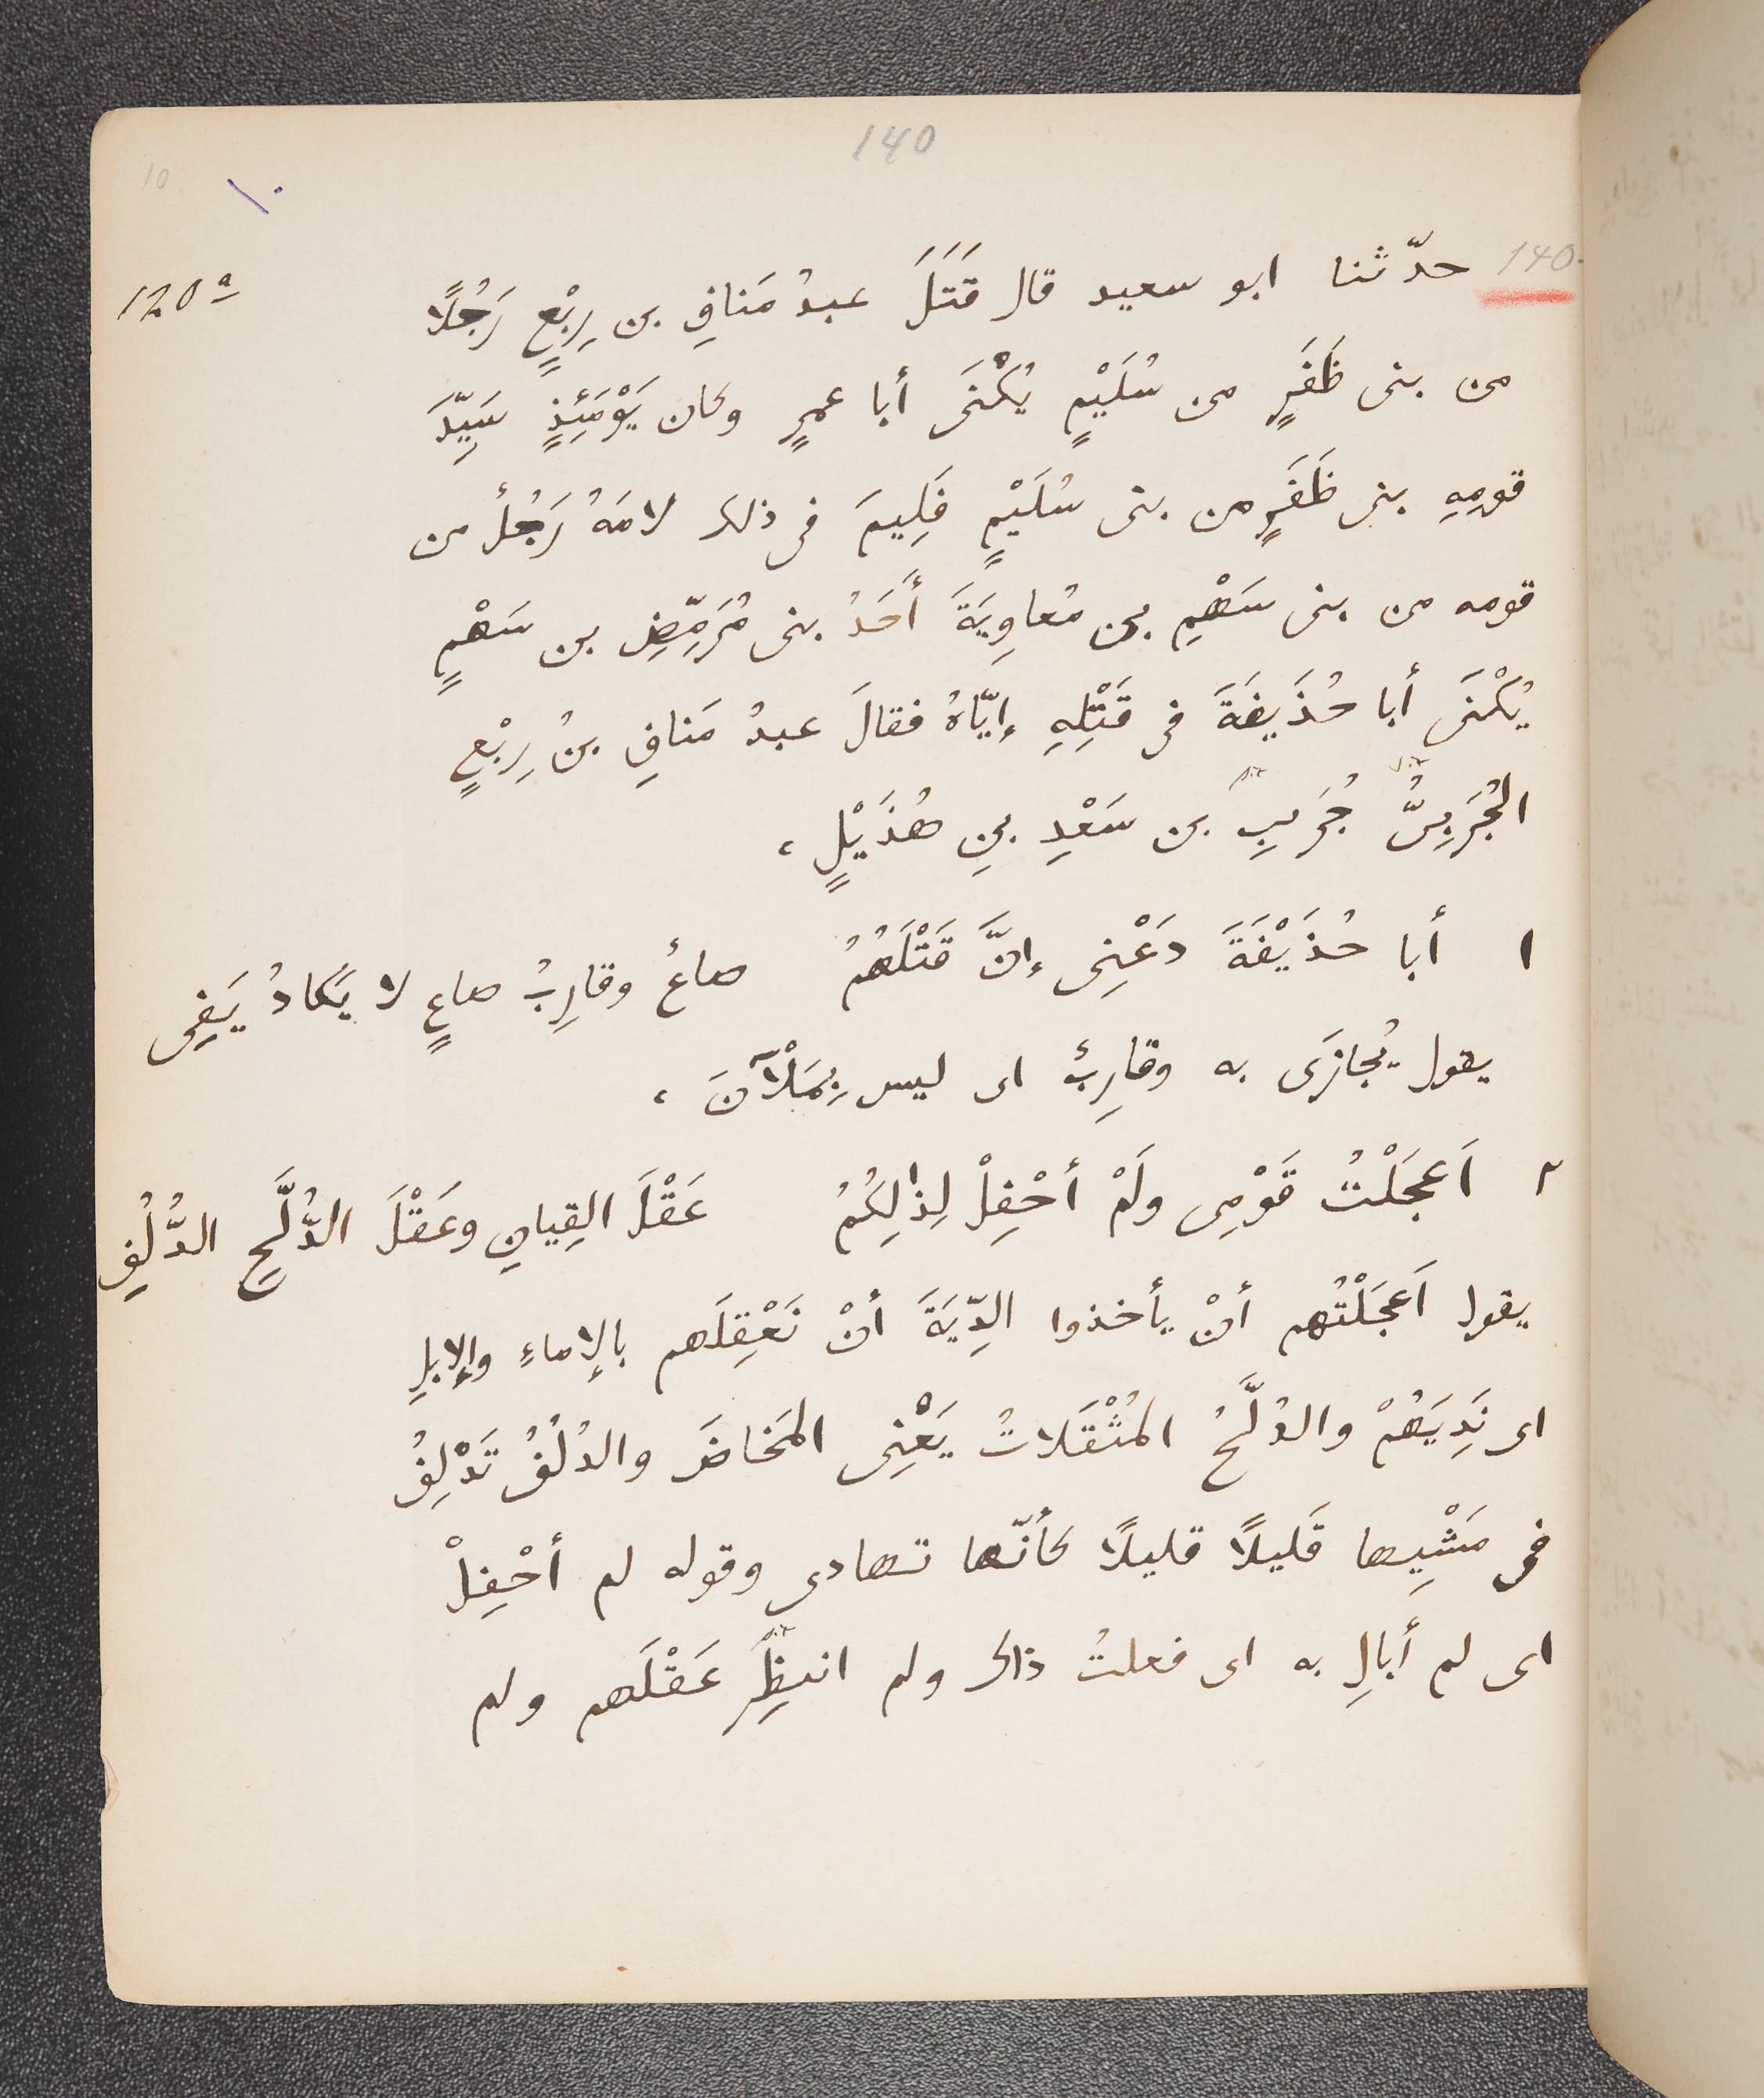 140
10
١٠
140. حدّثنا ابو سعيد قال قَتَلَ عبدُ مَنافِ بن رِبْعٍ رَجُلًا
120a
من بنى ظَفَرٍ من سُلَيْمٍ يُكْنَى أبا عمرٍ وكان يَوْمَئِذٍ سَيِّدَ
قومِهِ بنى ظَفَرٍ من بنى سُلَيْمٍ فَلِيمَ فى ذلك لامَهُ رَجُلٌ من
قومه من بنى سَهْمِ بن مُعاوِيَةَ أَحَدُ بنى مُرَمِّضِ بن سَهْمٍ
يُكْنَى أبا حُذَيفَةَ فى قَتْلِهِ إيّاهُ فقالَ عبدُ مَنافِ بنُ رِبْعٍ
الجُرَبِىُّ جُرَيبِ بن سَعْدِ بنِ هُذَيْلٍ ،
١ أبا حُذَيْفَةَ دَعْنِى إنَّ قَتْلَهُمُ صاعٌ وقارِبُ صاعٍ لا يَكادُ يَفِى
يقول يُجازَى به وقارِبٌ اى ليس بِمَلْآنَ ،
٢ اَعجَلْتُ قَوْمِى ولَمْ أحْفِلْ لِذٰلِكُمُ عَقْلَ القِيانِ وعَقْلَ الدُّلَّحِ الدُّلُفِ
يقول اَعجَلْتُهم أنْ يأخذوا الدِّيَةَ أنْ نَعْقِلَهم بالإماءِ والإبلِ
اى نَدِيَهُمْ والدُلَّحُ المُثْقَلاتُ يَعْنِى المَخاضَ والدُلُفُ تَدْلِفُ
فى مَشْيِها قَليلًا قليلًا كأنّها تهادى وقوله لم أحْفِلْ
اى لم أبالِ به اى فعلتُ ذاك ولم انتظِر عَقْلَهم ولم